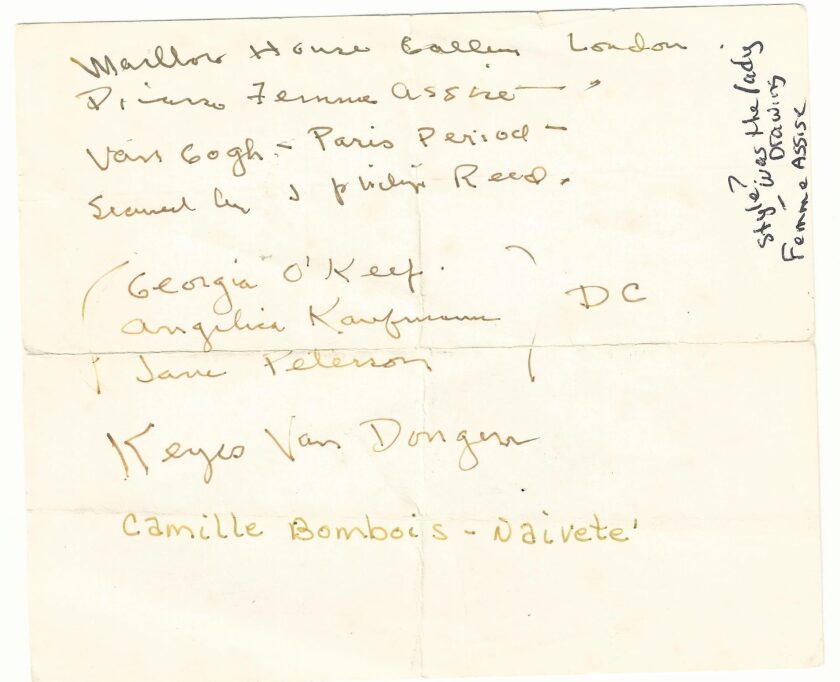 House London .
Femme Assise - "
Van Gogh - Paris Period -
by J Philip Reed.
Georgia O'Keef.
Angelica Kaufmann
Jane Peterson
DC
Keyes Van Dongen
Camille Bombois - Naiveté
Style?
- Was the lady
Drawing
Femme Assise